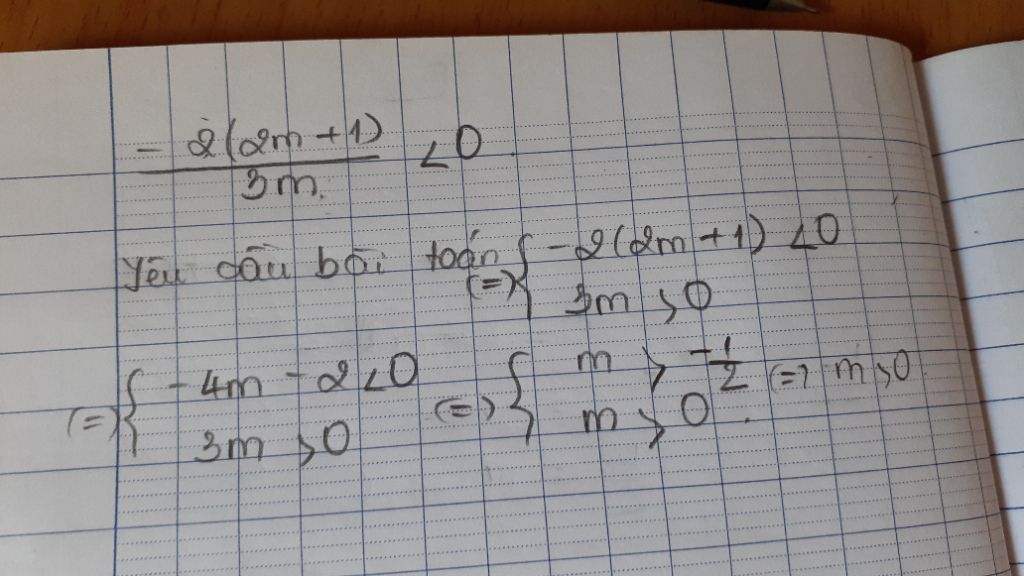 -2(2m+1)/3m < 0
Yêu cầu bài toán (=) { -2(2m+1) < 0
3m > 0
(=) { -4m - 2 < 0 (=) { m > -1/2 (=) m > 0
3m > 0 m > 0.